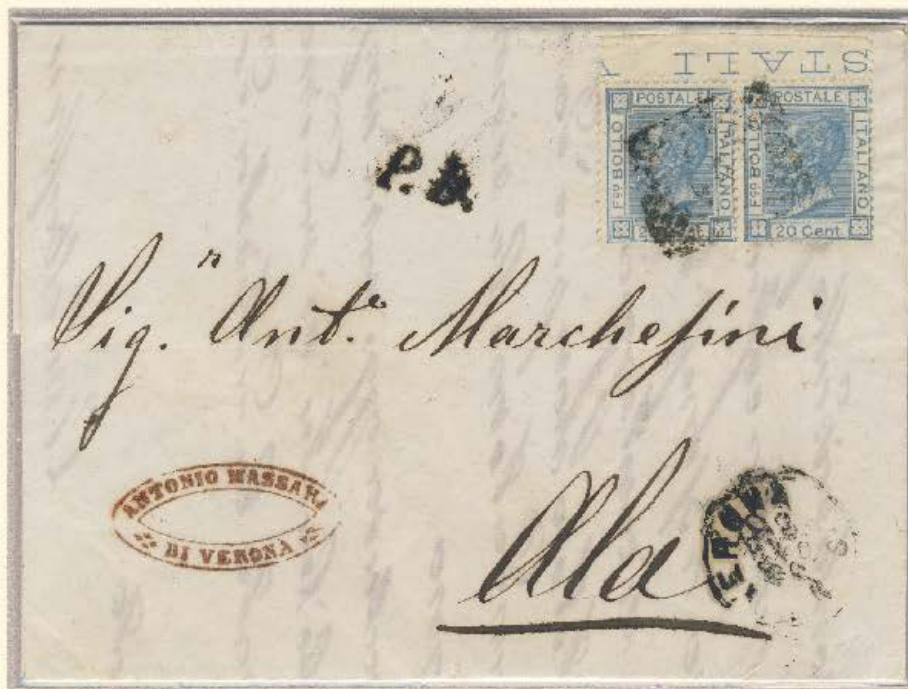 STALI
POSTALE
Fco BOLLO
ITALIANO
POSTALE
Fco BOLLO
ITALIANO
20 Cent.
P.D.
Sig.r Ant.o Marchesini
Ala
ANTONIO MASSARA
DI VERONA
VERONA